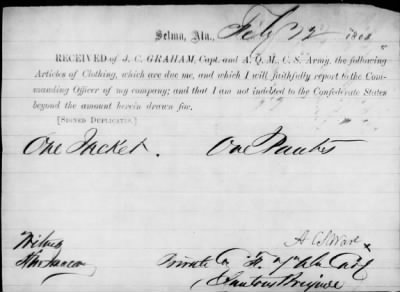 Selma, Ala., Feby 12 186
RECEIVED of J. C. GRAHAM, Capt. and A. Q. M., C. S. Army, the following
Articles of Clothing, which are due me, and which I will faithfully report to the Com-
manding Officer of my company; and that I am not indebted to the Confederate States
beyond the amount herein drawn for.
[SIGNED DUPLICATES.]
One Jacket. One Pants
A C S Ware x
Witness
Private Co F. 7th Ala Cavy
Clantons Brigade